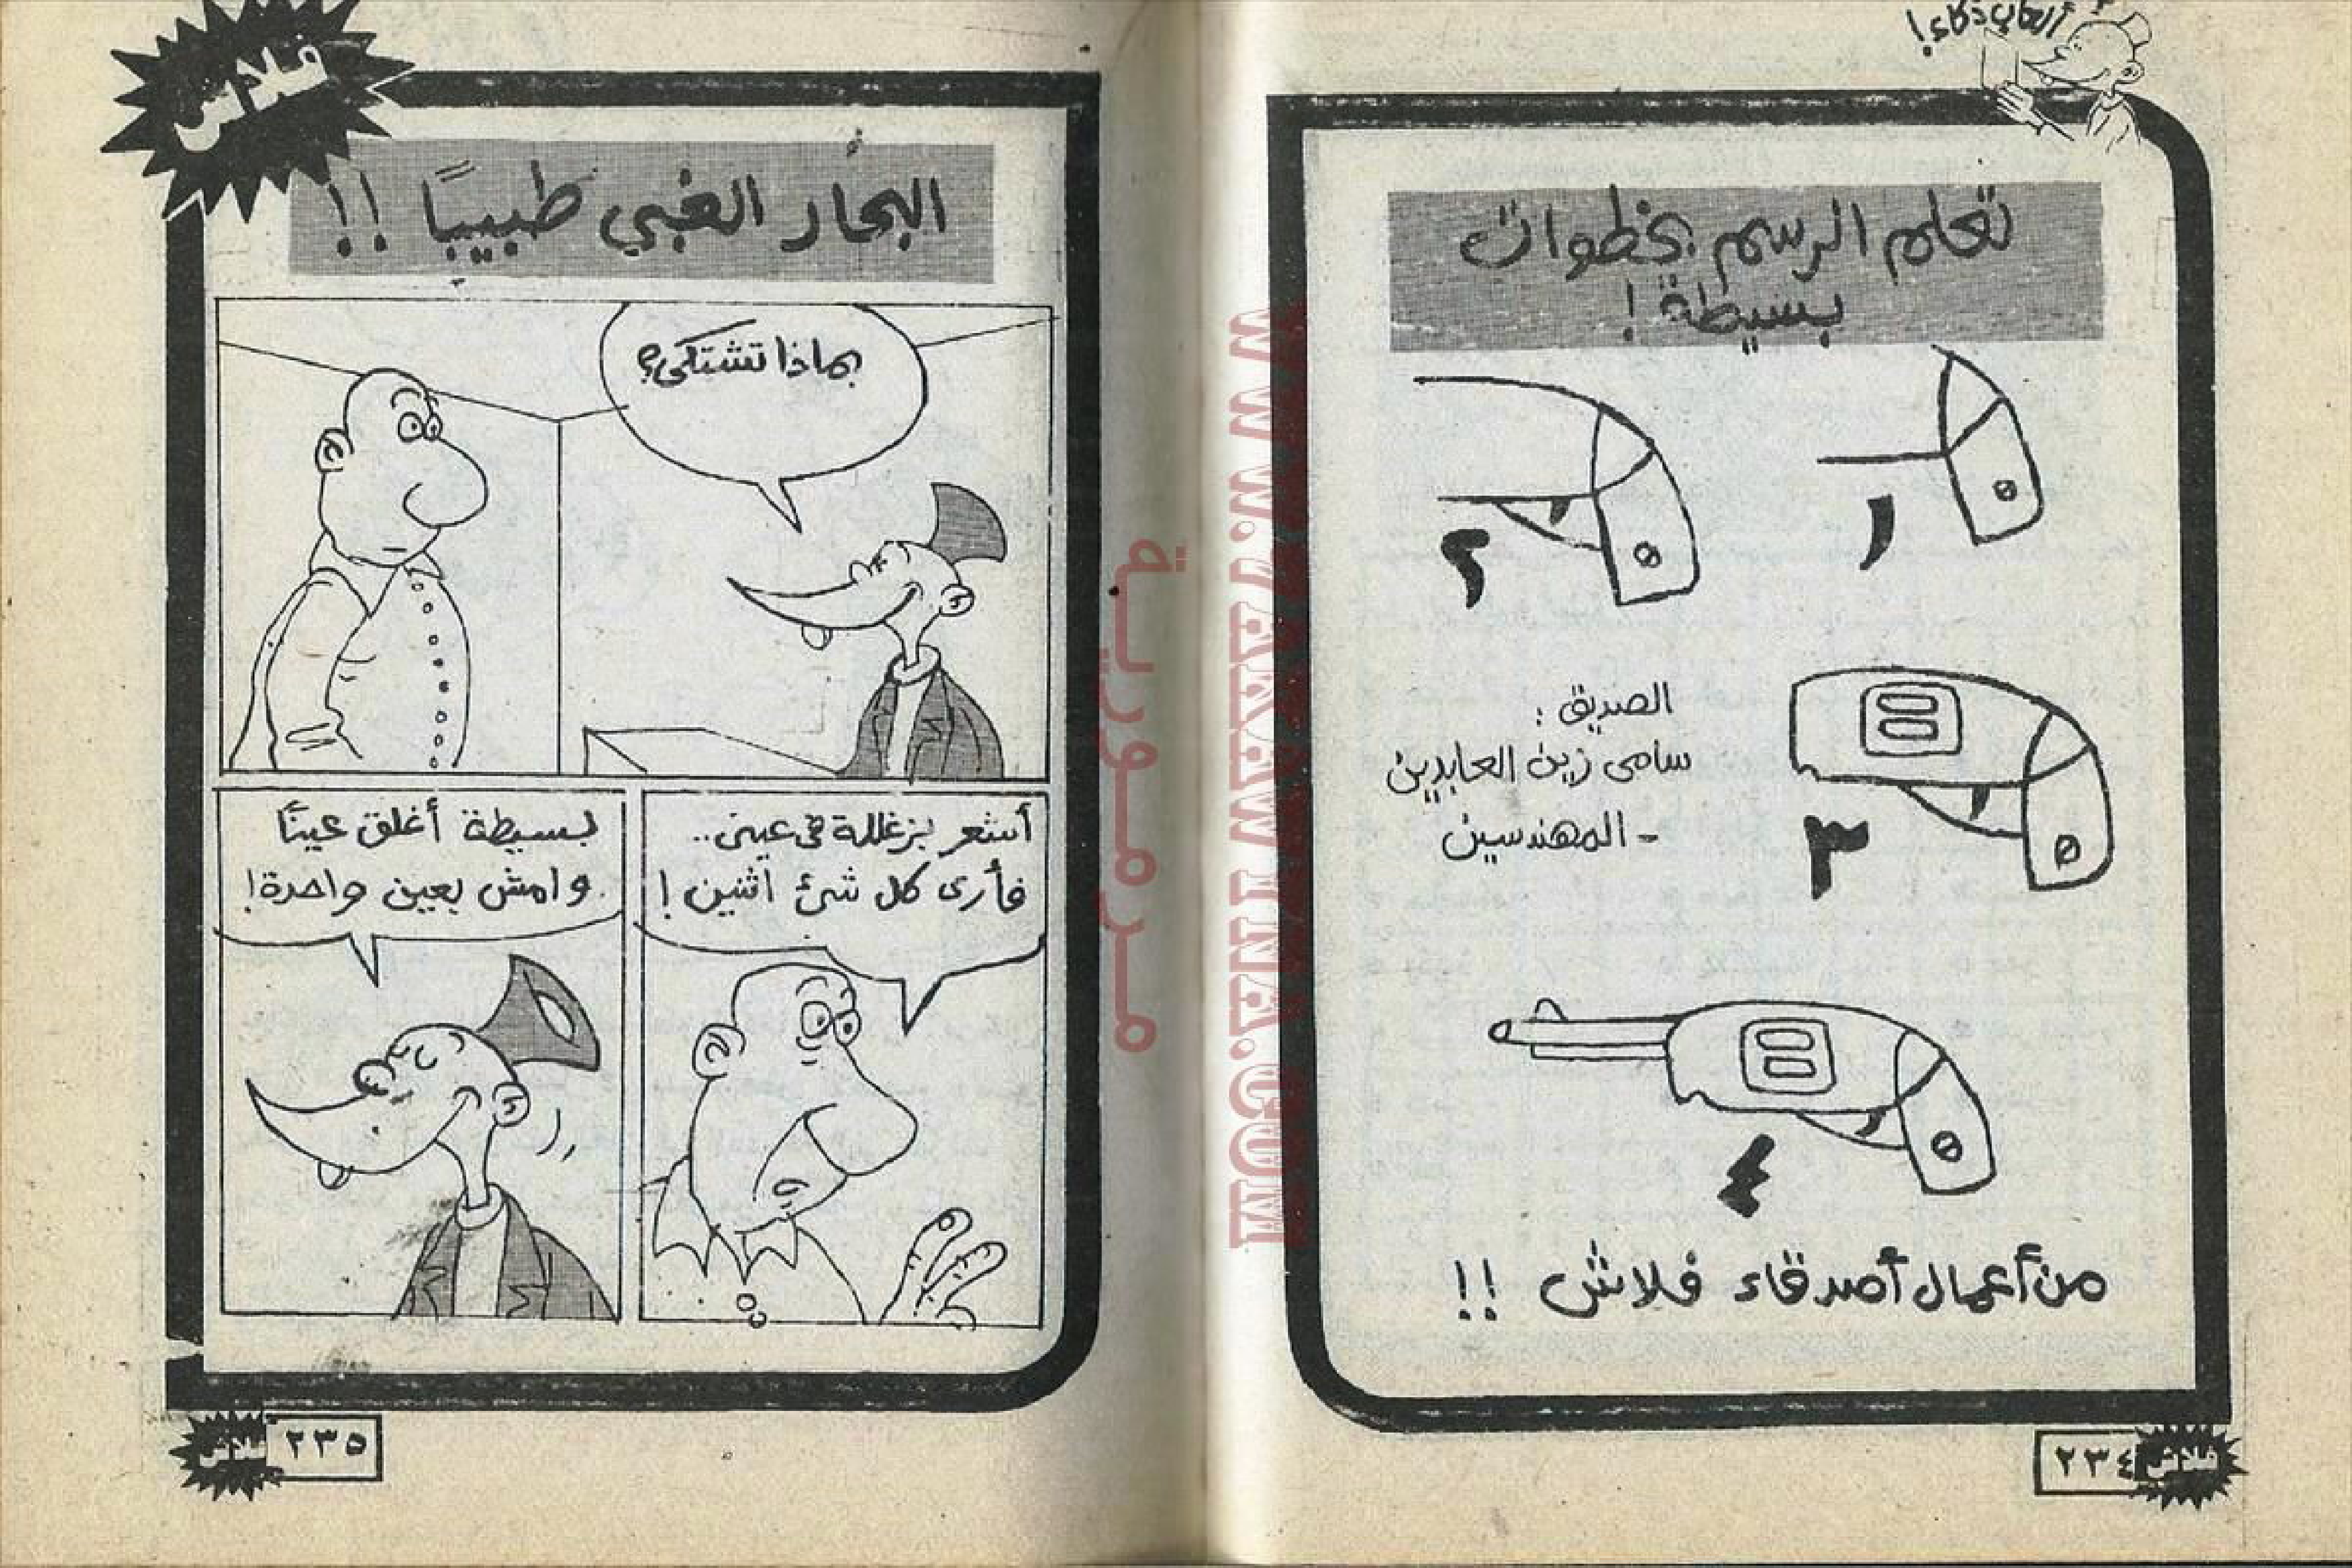 ألعاب ذكاء!
تعلم الرسم بخطوات
بسيطة!
١
٢
الصديق:
سامى زين العابدين
- المهندسين
٣
٤
من أعمال أصدقاء فلاش !!
فلاش
٢٣٤
WWW.
.COM
فلاش
البحار الغبي طبيبًا !!
بماذا تشتكى؟
أشعر بزغللة فى عينى..
فأرى كل شئ اثنين!
بسيطة أغلق عينًا
وامش بعين واحدة!
فلاش
٢٣٥